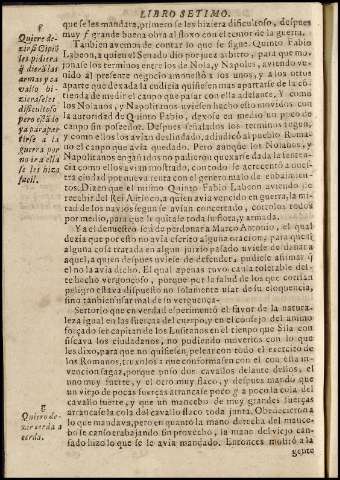 LIBRO SETIMO.
que se les mandava, primero se les hiziera dificultoso, despues
muy grande buena obra al floxo con el temor de la guerra.
Tambien avemos de contar lo que se sigue. Quinto Fabio
Labeon, a quien el Senado dio por juez arbitro, para que
los terminos entre los de Nola, y Napoles, aviendo ve-
nido al presente negocio amonestò a los unos, y a los otros
aparte que dexada la codicia quisiessen mas apartarse de la cõ-
tienda de un dir el campo que passar adelante. Y como
los Nolanos, y Napolitanos uviessen hecho esto movidos con
la autoridad de Quinto Fabio, dexose en medio un poco de
campo sin posseedor. Despues señalados los terminos
y como ellos los avian deslindado, adjudicò al pueblo Roma-
no el campo que avia quedado. Pero aunque los Nolanos, y
Napolitanos engañados no pudieron quexarse dada la senten-
cia como ellos avian mostrado, con todo se acrecentò a nues-
tra ciudad por nueva renta con el genero malo de embaimien-
tos. Dizen que el mismo Quinto Fabio Labeon aviendo de
recebir del Rey Antioco, a quien avia vencido en guerra, la mi-
tad de los navios segun se avian concertado, cortolos todos
por medio, para que le quitase toda su flota, y armada.
Ya el demerito se à de perdonar a Marco Antonio, el qual
dezia que por esto no avia escrito alguna oracion, para que si
alguna cosa tratada en algun juizio passado uviese de dañar a
aquel, a quien despues uviese de defender, pudiese afirmar q̃
el no la avia dicho. El qual apenas tuvo causa tolerable del
hecho vergonçoso, porque por la salud de los que corrian
peligro estava dispuesto no solamente usar de su eloquencia,
sino tambien usar mal de su verguença.
Sertorio que en verdad esperimentò el favor de la natura-
leza igual en las fuerças del cuerpo, y en el consejo del animo
forçado ser capitan de los Lusitanos en el tiempo que Sila con
fiscava los ciudadanos, no pudiendo moverlos con lo que
les dixo, para que no quisiesen pelear con todo el exercito de
los Romanos, truxolos a que conformasen con el con una in-
vencion sagaz, porque puso dos cavallos delante dellos, el
uno muy fuerte, y el otro muy flaco, y despues mandò que
un viejo de pocas fuerças arrancase poco a poco la cola del
cavallo fuerte, y que un mancebo de muy grandes fuerças
arrancase la cola del cavallo flaco toda junta. Obedecieron a
lo que mandava, pero en quanto la mano derecha del mance-
bo se cansò trabajando sin provecho, la mano del viejo can-
sado hizo lo que se le avia mandado. Entonces mostrò a la
gente
Quiere de-
zir si Cipiõ
les pidiera
q̃ dieran las
armas y ca
vallo hi-
zieraseles
dificultoso
pero echado
ya para par
tirse a la
guerra por
no ir a ella
se les hizo
facil.
Quiero de-
zir cerda a
cerda.